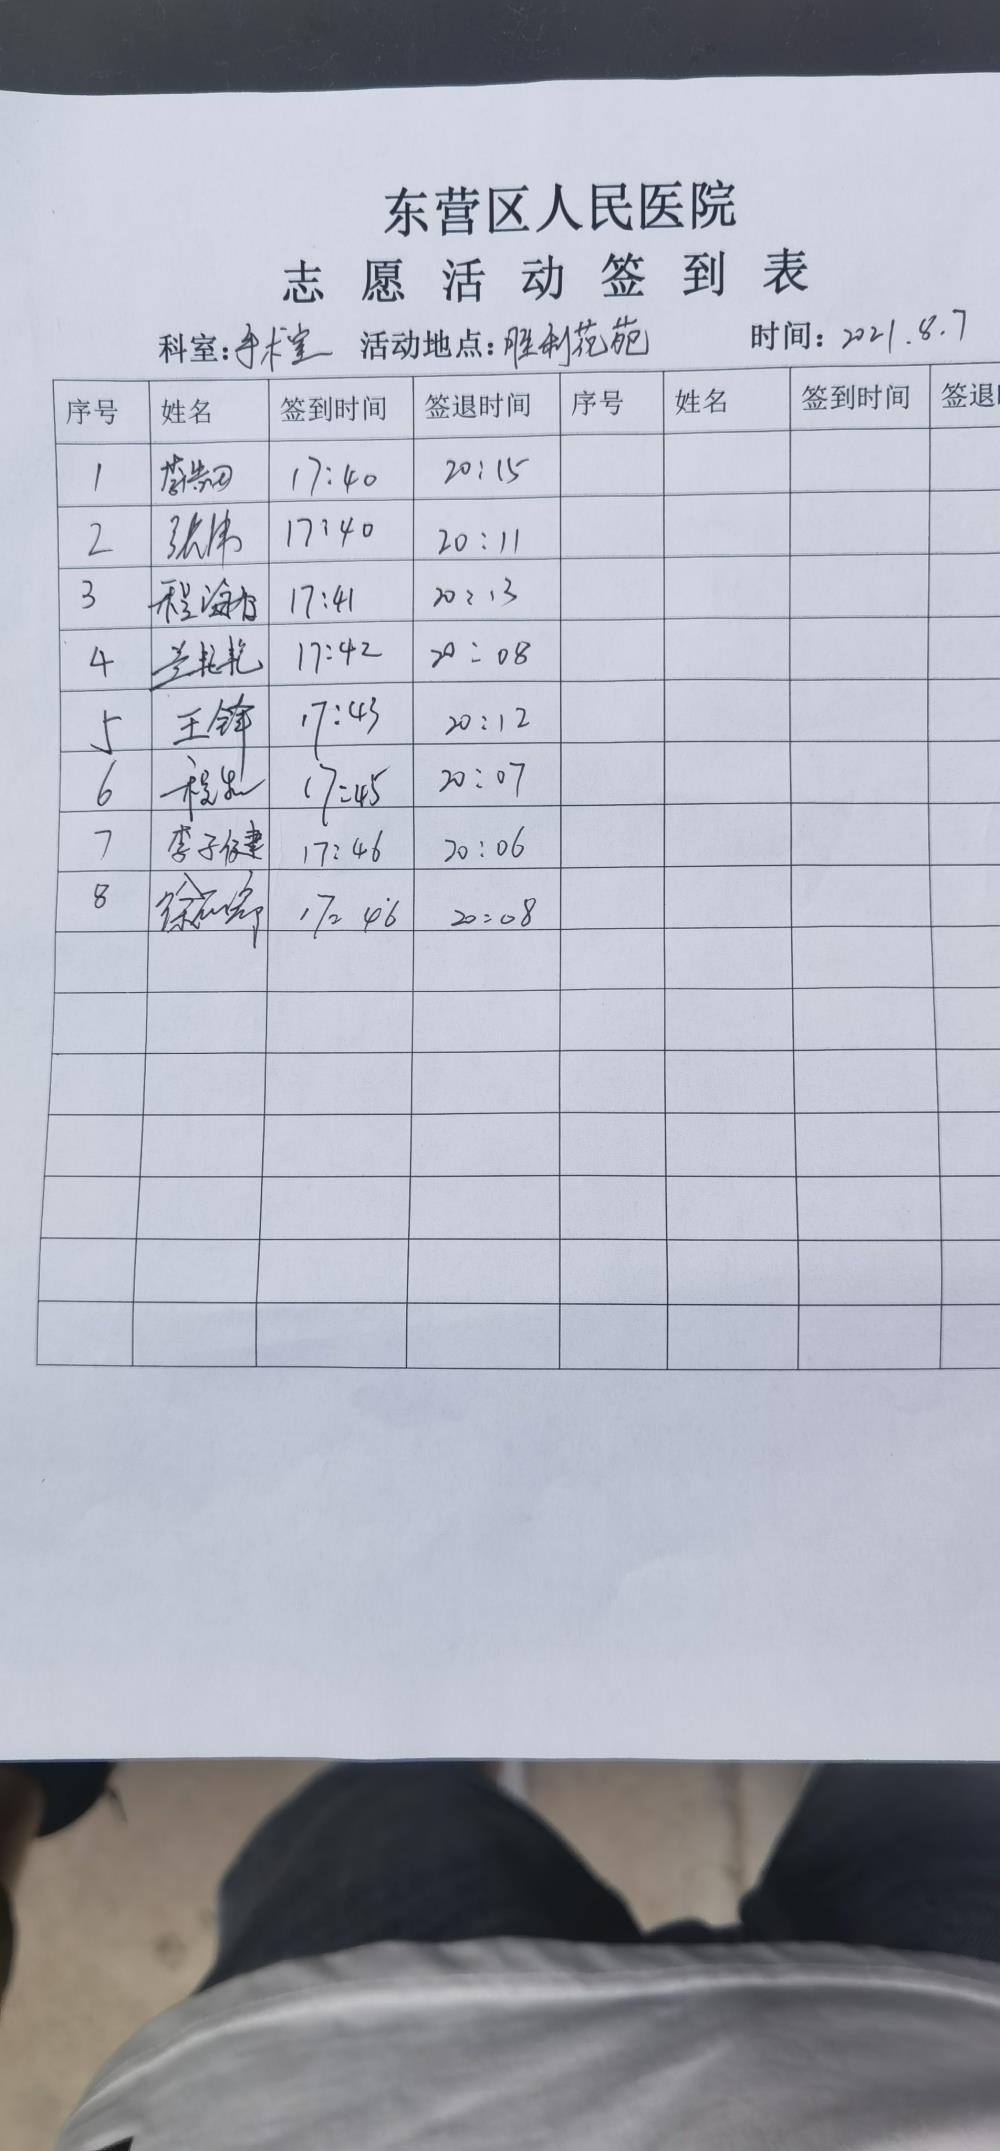 东营区人民医院
志愿活动签到表
科室:手术室 活动地点:胜利花苑 时间:2021.8.7
序号 姓名 签到时间 签退时间 序号 姓名 签到时间 签退
1 17:40 20:15
2 张伟 17:40 20:11
3 17:41 20:13
4 兰艳艳 17:42 20:08
5 王锋 17:43 20:12
6 17:45 20:07
7 李子健 17:46 20:06
8 17:46 20:08